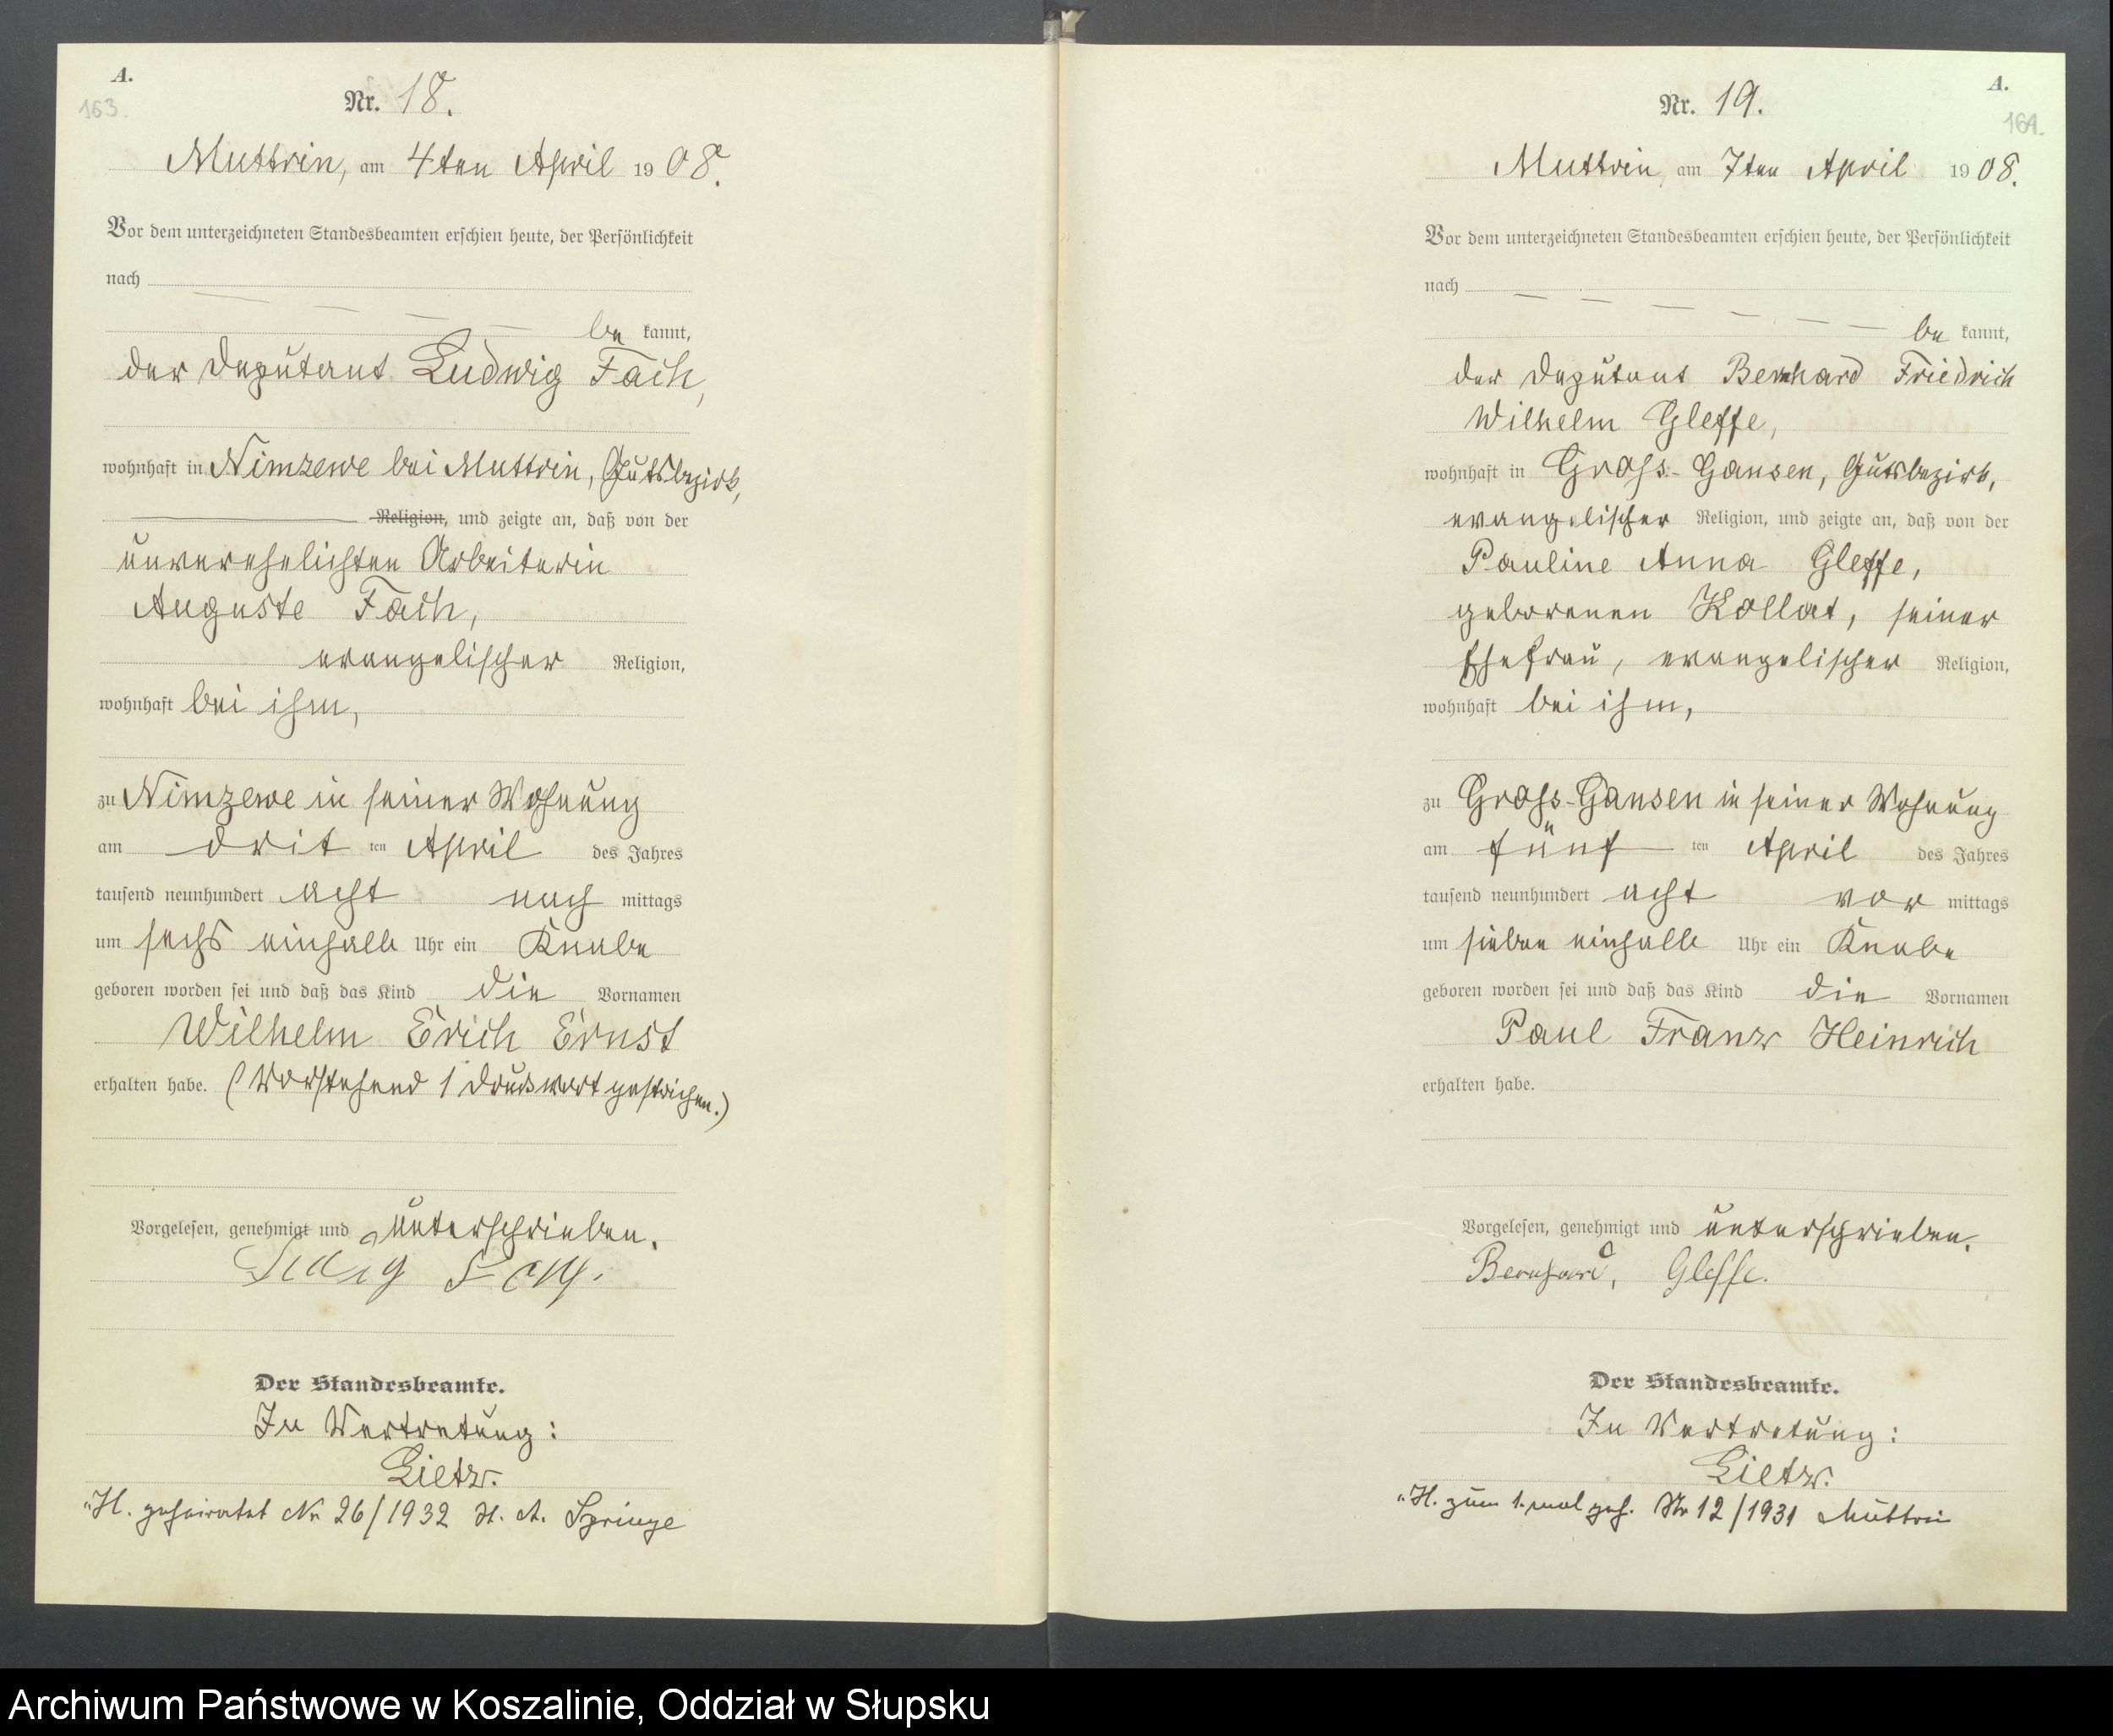 A.
163.
Nr. 18.
Muttrin, am 4ten April 1908.
Vor dem unterzeichneten Standesbeamten erschien heute, der Persönlichkeit
nach
be kannt,
der Deputant Ludwig Fach,
wohnhaft in Nimzewe bei Muttrin, Gutsbezirk,
Religion, und zeigte an, daß von der
unverehelichten Arbeiterin
Auguste Fach,
evangelischer Religion,
wohnhaft bei ihm,
zu Nimzewe in seiner Wohnung
am drit ten April des Jahres
tausend neunhundert acht nach mittags
um sechs einhalb Uhr ein Knabe
geboren worden sei und daß das Kind die Vornamen
Wilhelm Erich Ernst
erhalten habe. (Vorstehend 1 Druckwort gestrichen.)
Vorgelesen, genehmigt und unterschrieben.
Der Standesbeamte.
In Vertretung:
Lietz.
"H. geheiratet Nr 26/1932 St. A. Springe
A.
164.
Nr. 19.
Muttrin, am 7ten April 1908.
Vor dem unterzeichneten Standesbeamten erschien heute, der Persönlichkeit
nach
be kannt,
der Deputant Bernhard Friedrich
Wilhelm Gleffe,
wohnhaft in Gross-Gansen, Gutsbezirk,
evangelischer Religion, und zeigte an, daß von der
Pauline Anna Gleffe,
geborenen Kollat, seiner
Ehefrau, evangelischer Religion,
wohnhaft bei ihm,
zu Gross-Gansen in seiner Wohnung
am fünf ten April des Jahres
tausend neunhundert acht vor mittags
um sieben einhalb Uhr ein Knabe
geboren worden sei und daß das Kind die Vornamen
Paul Franz Heinrich
erhalten habe.
Vorgelesen, genehmigt und unterschrieben.
Bernhard, Gleffe.
Der Standesbeamte.
In Vertretung:
Lietz.
"H. zum 1. mal geh. Nr 12/1931 Muttrin
Archiwum Państwowe w Koszalinie, Oddział w Słupsku